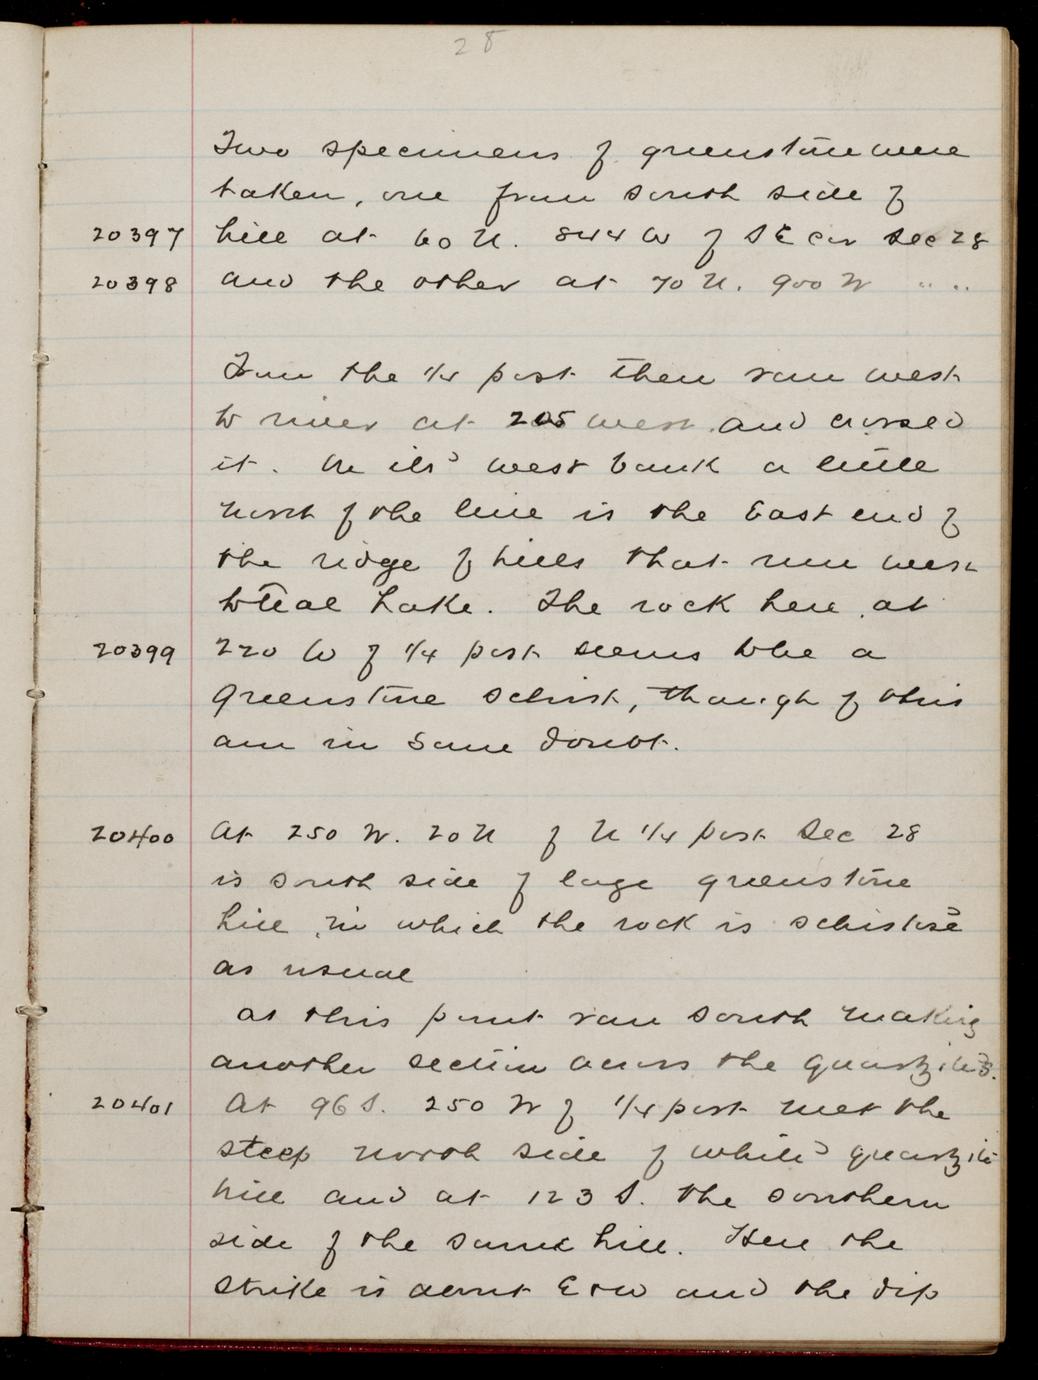 28
Two specimens of greenstone were
taken, one from south side of
20397 hill at 60 N. 844 W of SE cor Sec 28
20398 and the other at 70 N. 900 W " "
From the 1/4 post then ran west
to river at 205 west and crossed
it. On its west bank a little
north of the line is the East end of
the ridge of hills that run west
to Teal Lake. The rock here at
20399 220 W of 1/4 post seems to be a
greenstone schist, though of this
am in some doubt.
20400 At 250 W. 20 N of N 1/4 post Sec 28
is south side of large greenstone
hill in which the rock is schistose
as usual
at this point ran south making
another section across the quartzites.
20401 At 96 S. 250 W of 1/4 post met the
steep north side of white quartzite
hill and at 123 S. the southern
side of the same hill. Here the
strike is about E+W and the dip